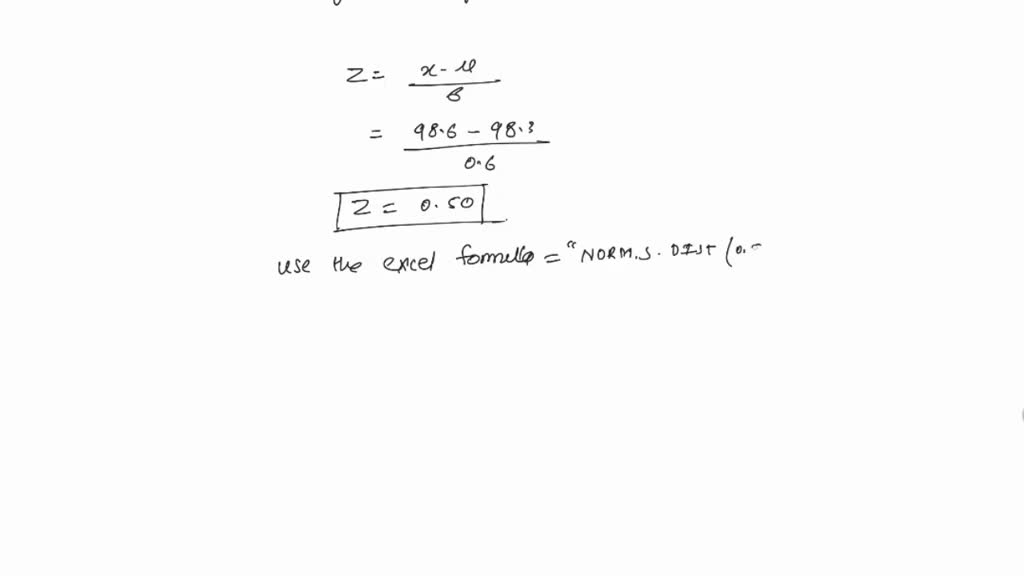 Z = x - μ
6
= 98.6 - 98.3
0.6
Z = 0.50
use the excel formula = "NORM.S. DIST (0.